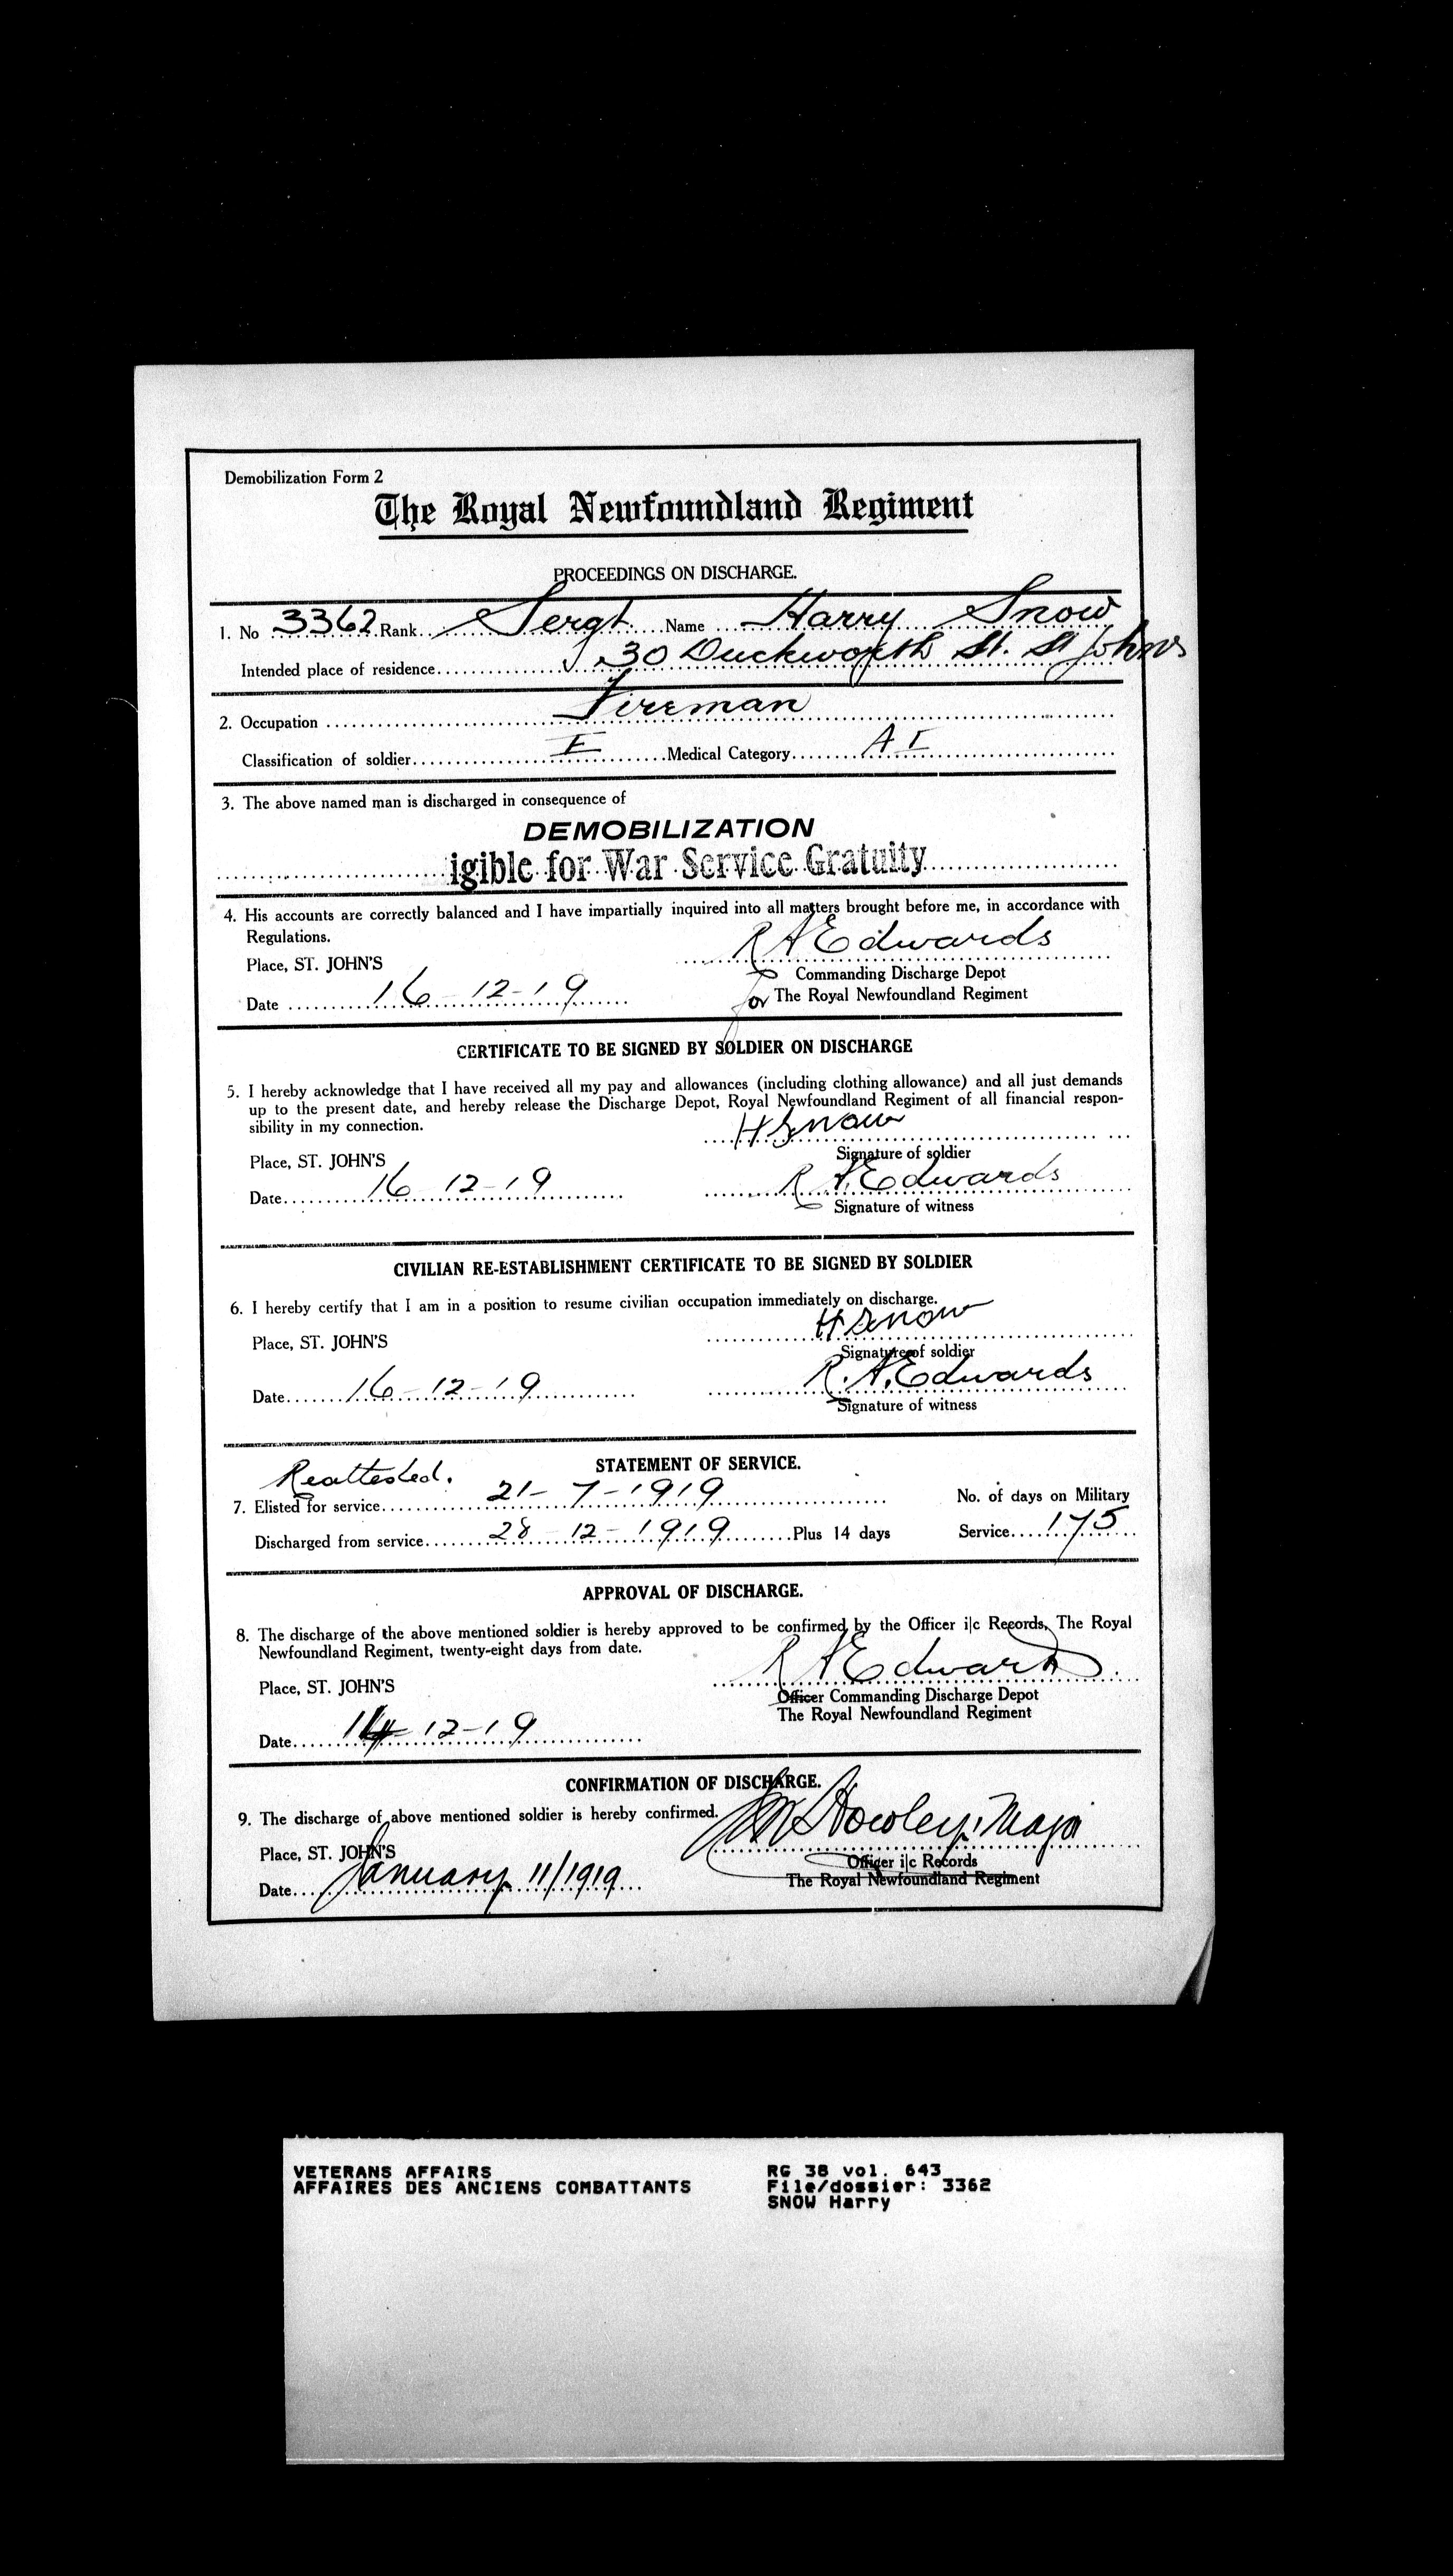 Demobilization Form 2
The Royal Newfoundland Regiment
PROCEEDINGS ON DISCHARGE.
1. No 3362 Rank Sergt. Name Harry Snow
Intended place of residence 30 Duckworth St. St Johns
2. Occupation Fireman
Classification of soldier I Medical Category A I
3. The above named man is discharged in consequence of
DEMOBILIZATION
igible for War Service Gratuity
4. His accounts are correctly balanced and I have impartially inquired into all matters brought before me, in accordance with
Regulations.
R A Edwards
Place, ST. JOHN'S
Commanding Discharge Depot
Date 16-12-19 for The Royal Newfoundland Regiment
CERTIFICATE TO BE SIGNED BY SOLDIER ON DISCHARGE
5. I hereby acknowledge that I have received all my pay and allowances (including clothing allowance) and all just demands
up to the present date, and hereby release the Discharge Depot, Royal Newfoundland Regiment of all financial respon-
sibility in my connection.
H Snow
Place, ST. JOHN'S
Signature of soldier
Date 16-12-19 R A Edwards
Signature of witness
CIVILIAN RE-ESTABLISHMENT CERTIFICATE TO BE SIGNED BY SOLDIER
6. I hereby certify that I am in a position to resume civilian occupation immediately on discharge.
H Snow
Place, ST. JOHN'S
Signature of soldier
Date 16-12-19 R. A. Edwards
Signature of witness
STATEMENT OF SERVICE.
Reattested.
7. Elisted for service 21-7-1919 No. of days on Military
Discharged from service 28-12-1919 Plus 14 days Service 175
APPROVAL OF DISCHARGE.
8. The discharge of the above mentioned soldier is hereby approved to be confirmed by the Officer i|c Records, The Royal
Newfoundland Regiment, twenty-eight days from date.
R A Edwards
Place, ST. JOHN'S
Officer Commanding Discharge Depot
The Royal Newfoundland Regiment
Date 14-12-19
CONFIRMATION OF DISCHARGE.
9. The discharge of above mentioned soldier is hereby confirmed.
Howley, Major
Place, ST. JOHN'S
Officer i|c Records
The Royal Newfoundland Regiment
Date January 11/1919
VETERANS AFFAIRS RG 38 vol. 643
AFFAIRES DES ANCIENS COMBATTANTS File/dossier: 3362
SNOW Harry